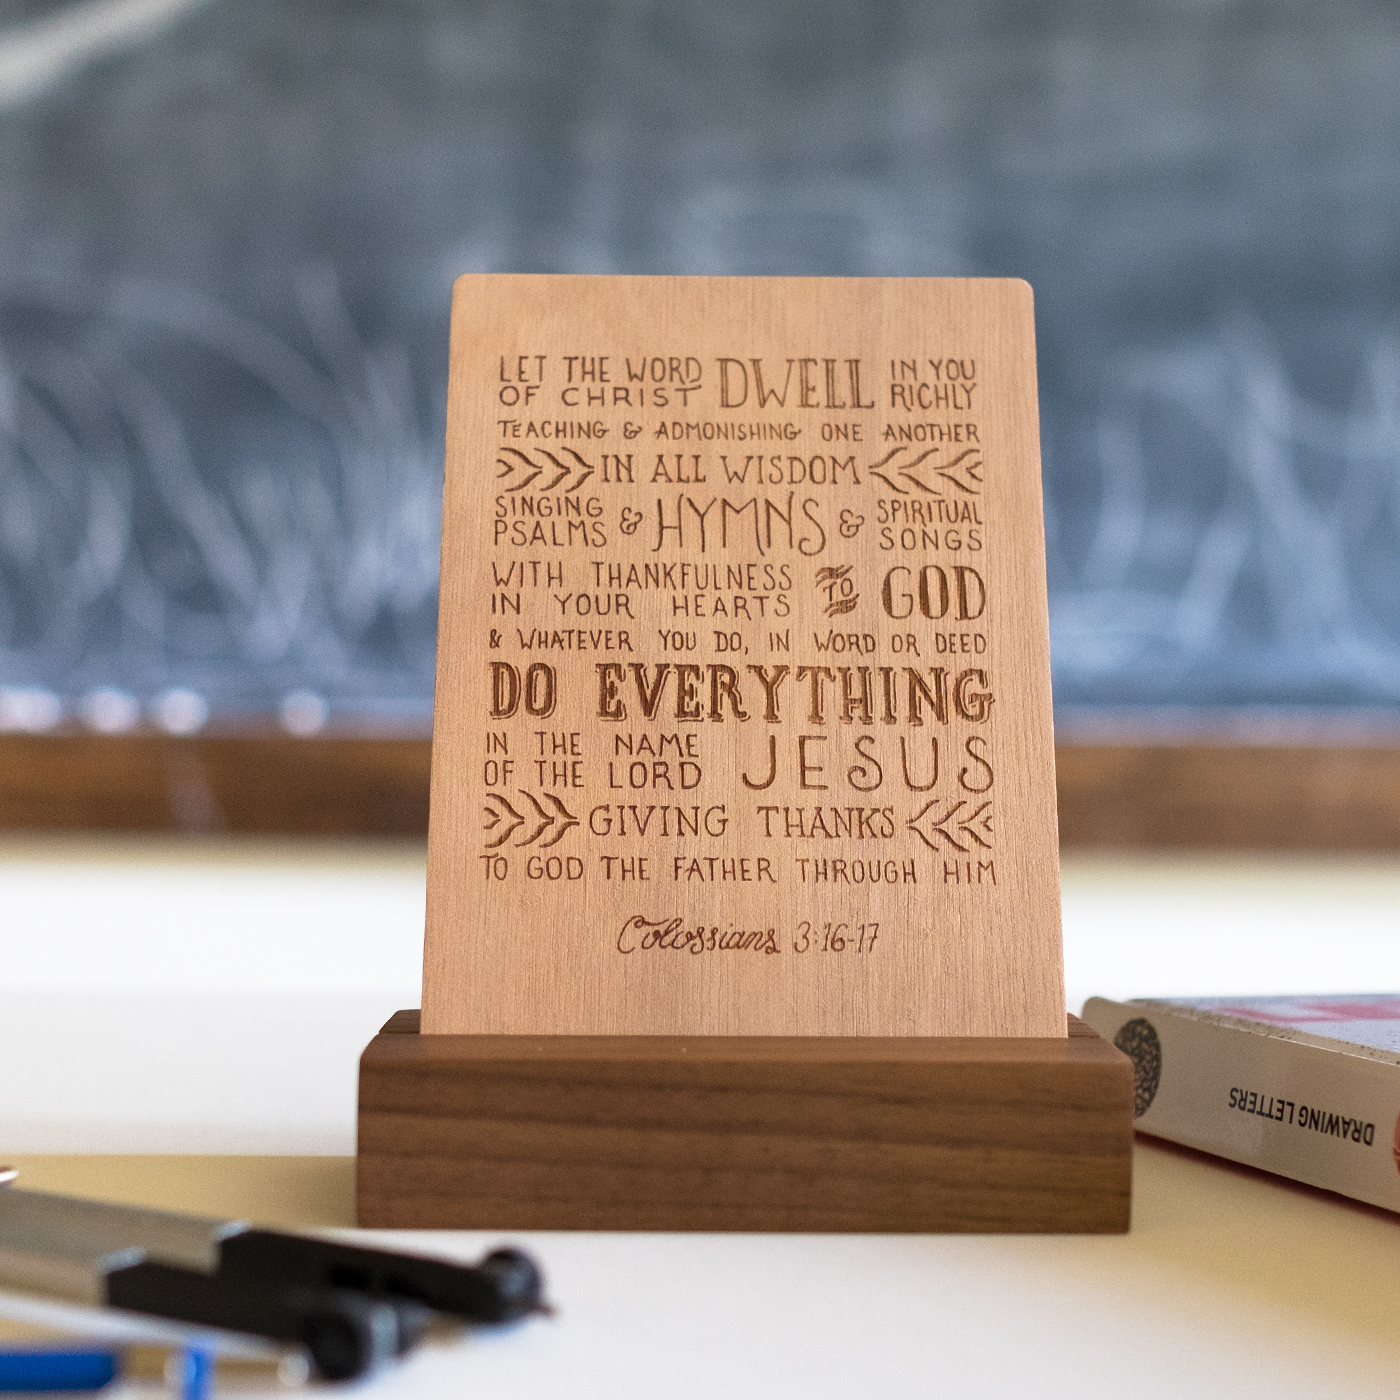 LET THE WORD OF CHRIST DWELL IN YOU RICHLY
TEACHING & ADMONISHING ONE ANOTHER
IN ALL WISDOM
SINGING PSALMS & HYMNS & SPIRITUAL SONGS
WITH THANKFULNESS IN YOUR HEARTS TO GOD
& WHATEVER YOU DO, IN WORD OR DEED
DO EVERYTHING
IN THE NAME OF THE LORD JESUS
GIVING THANKS
TO GOD THE FATHER THROUGH HIM
Colossians 3:16-17
DRAWING LETTERS